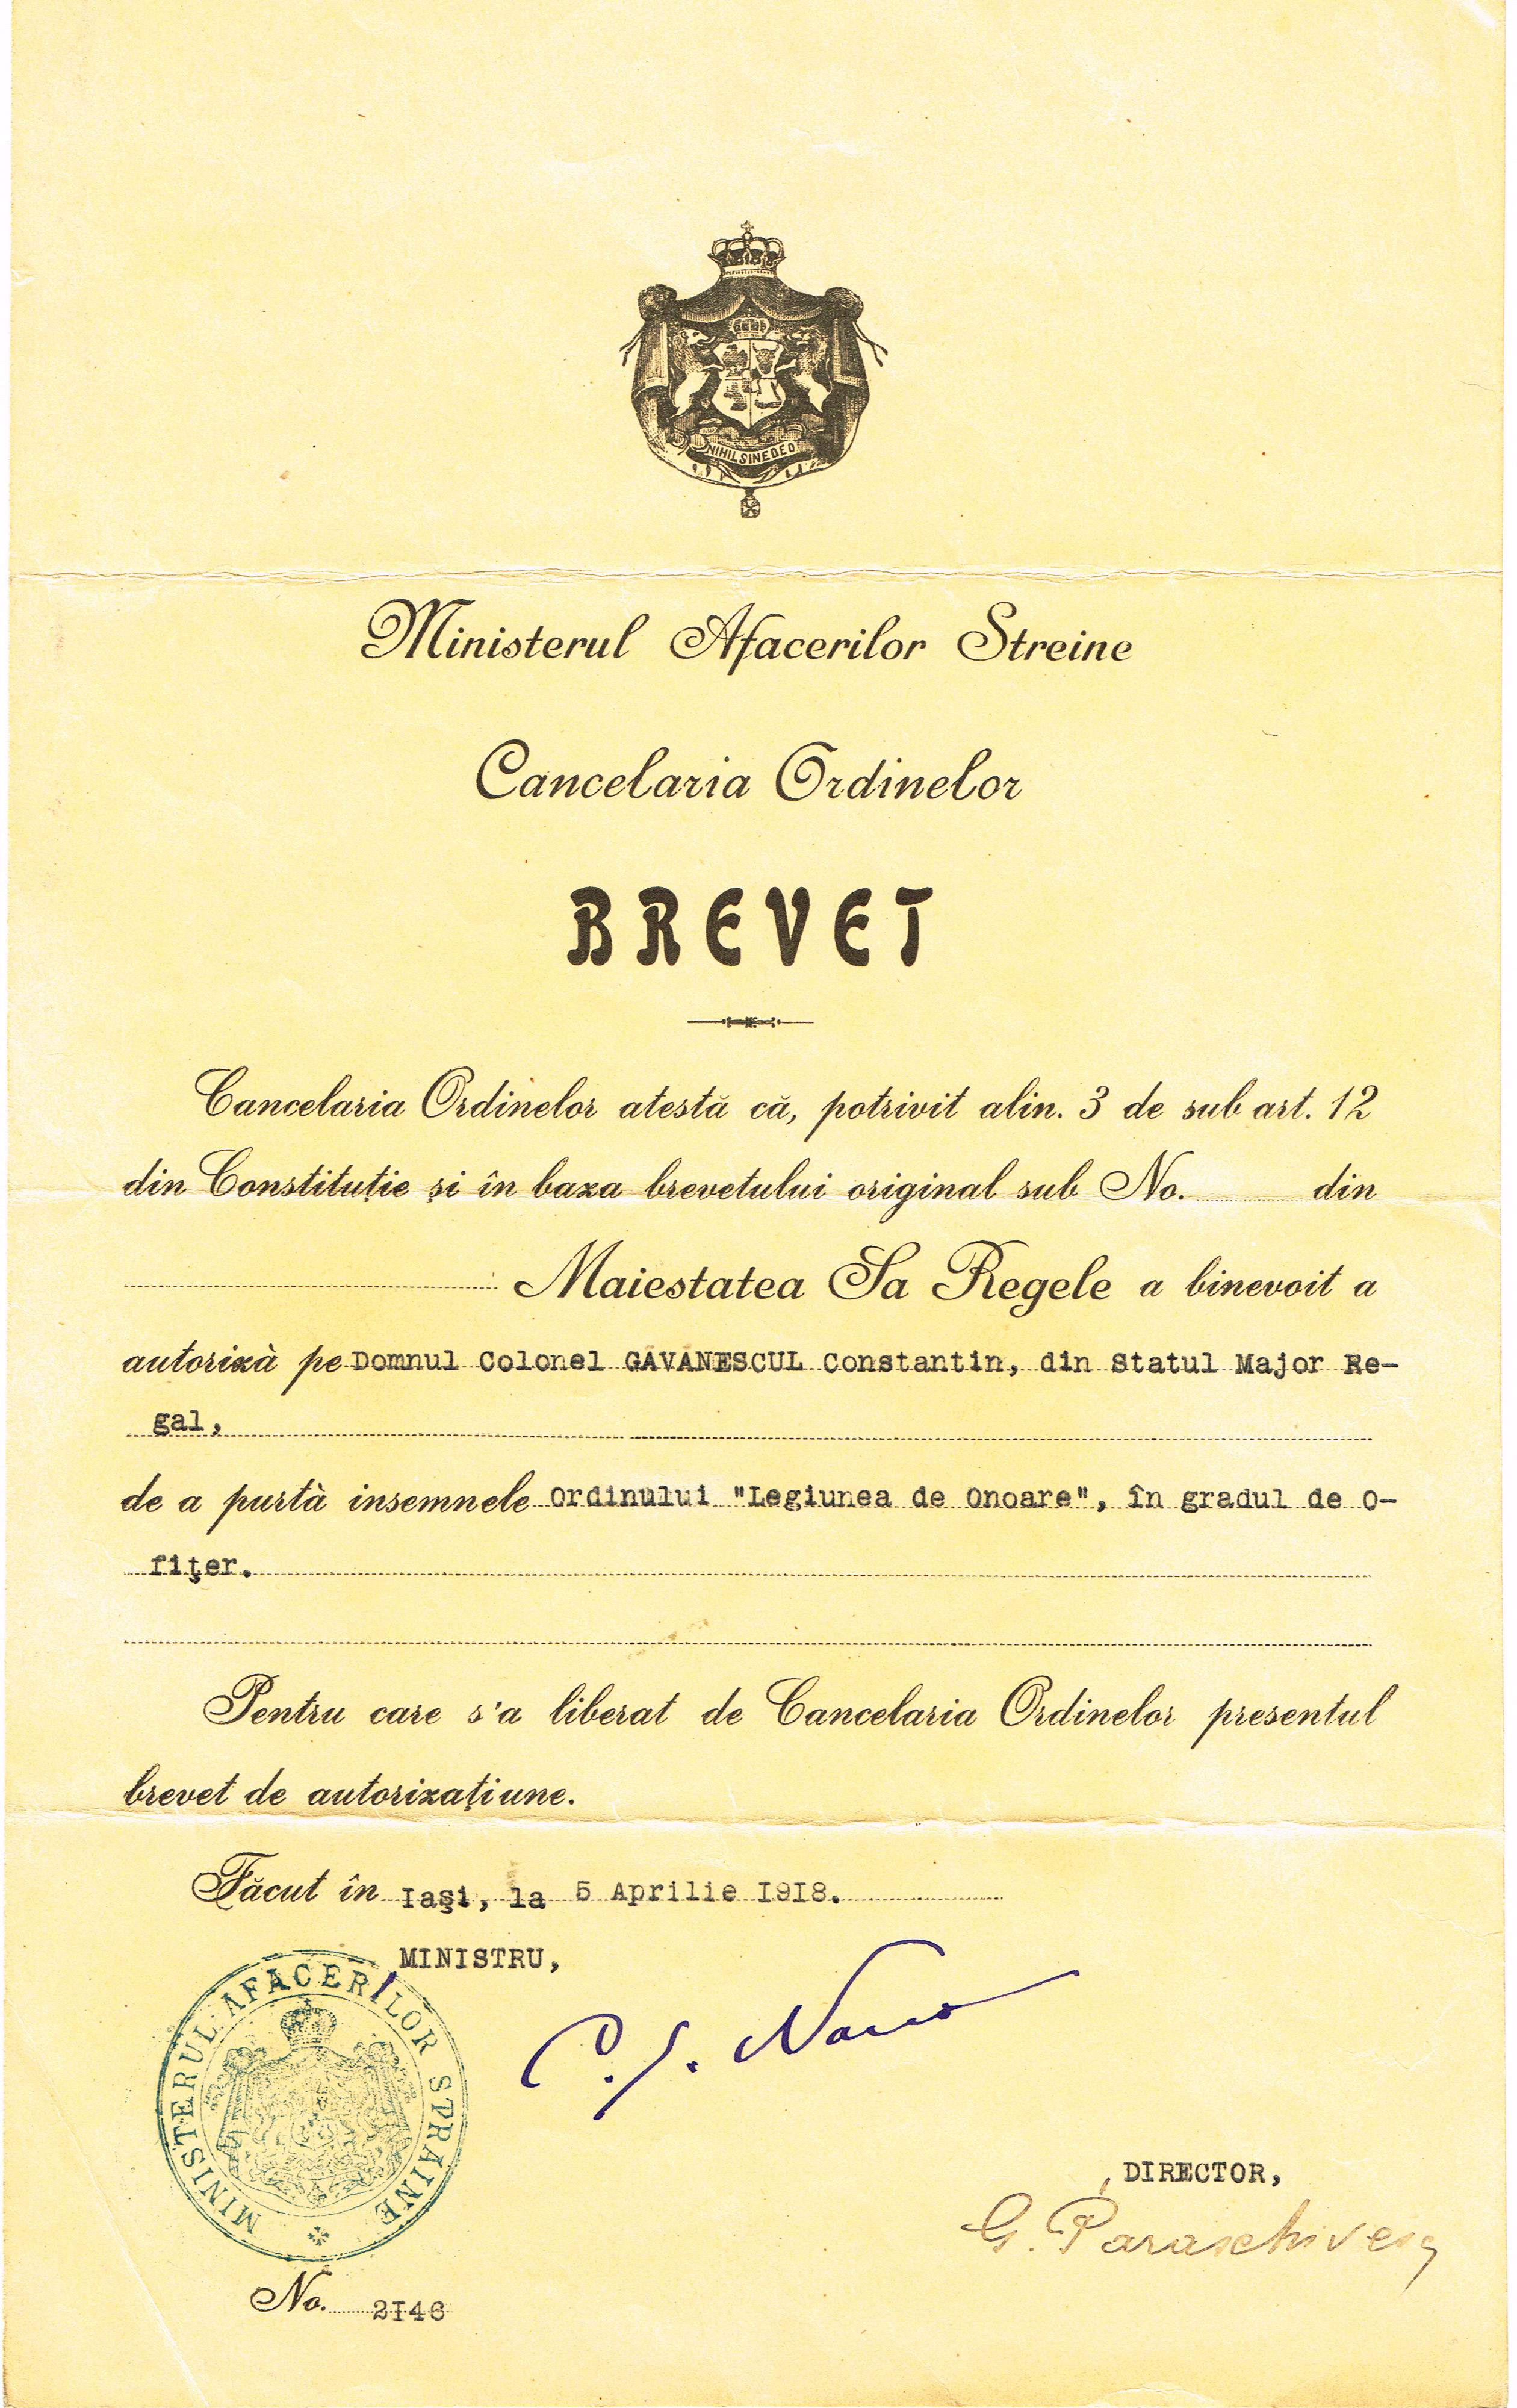 NIHIL SINE DEO
Ministerul Afacerilor Streine
Cancelaria Ordinelor
BREVET
Cancelaria Ordinelor atestă că, potrivit alin. 3 de sub art. 12
din Constituție și în baza brevetului original sub No. din
Maiestatea Sa Regele a binevoit a
autorizà pe Domnul Colonel GĂVĂNESCUL Constantin, din Statul Major Re-
gal,
de a purtà insemnele Ordinului "Legiunea de Onoare", în gradul de O-
fițer.
Pentru care s'a liberat de Cancelaria Ordinelor presentul
brevet de autorizațiune.
Făcut în Iași, la 5 Aprilie 1918.
MINISTRU,
MINISTERUL AFACERILOR STRAINE
DIRECTOR,
G. Paraschivescu
No. 2146